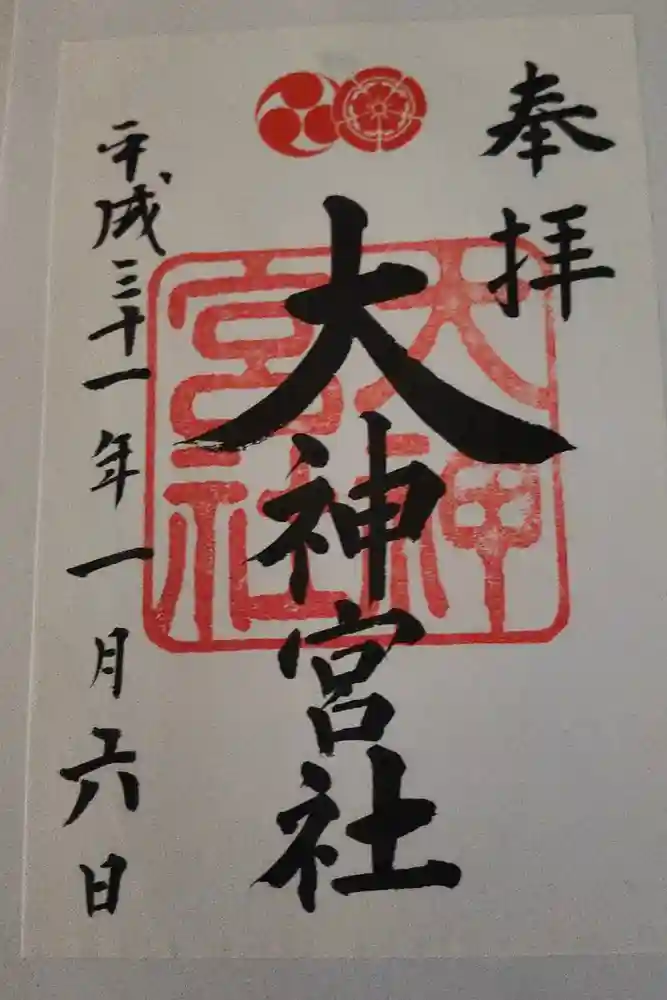 奉拝
大神宮社
大神宮社
平成三十一年一月六日